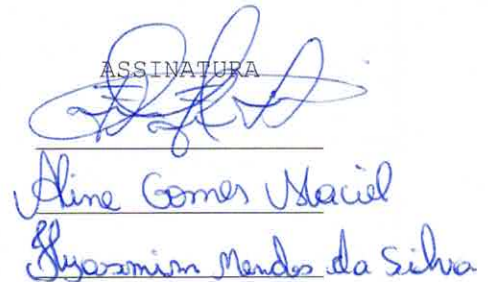 ASSINATURA
Aline Gomes Maciel
Hyasmim Mendes da Silva